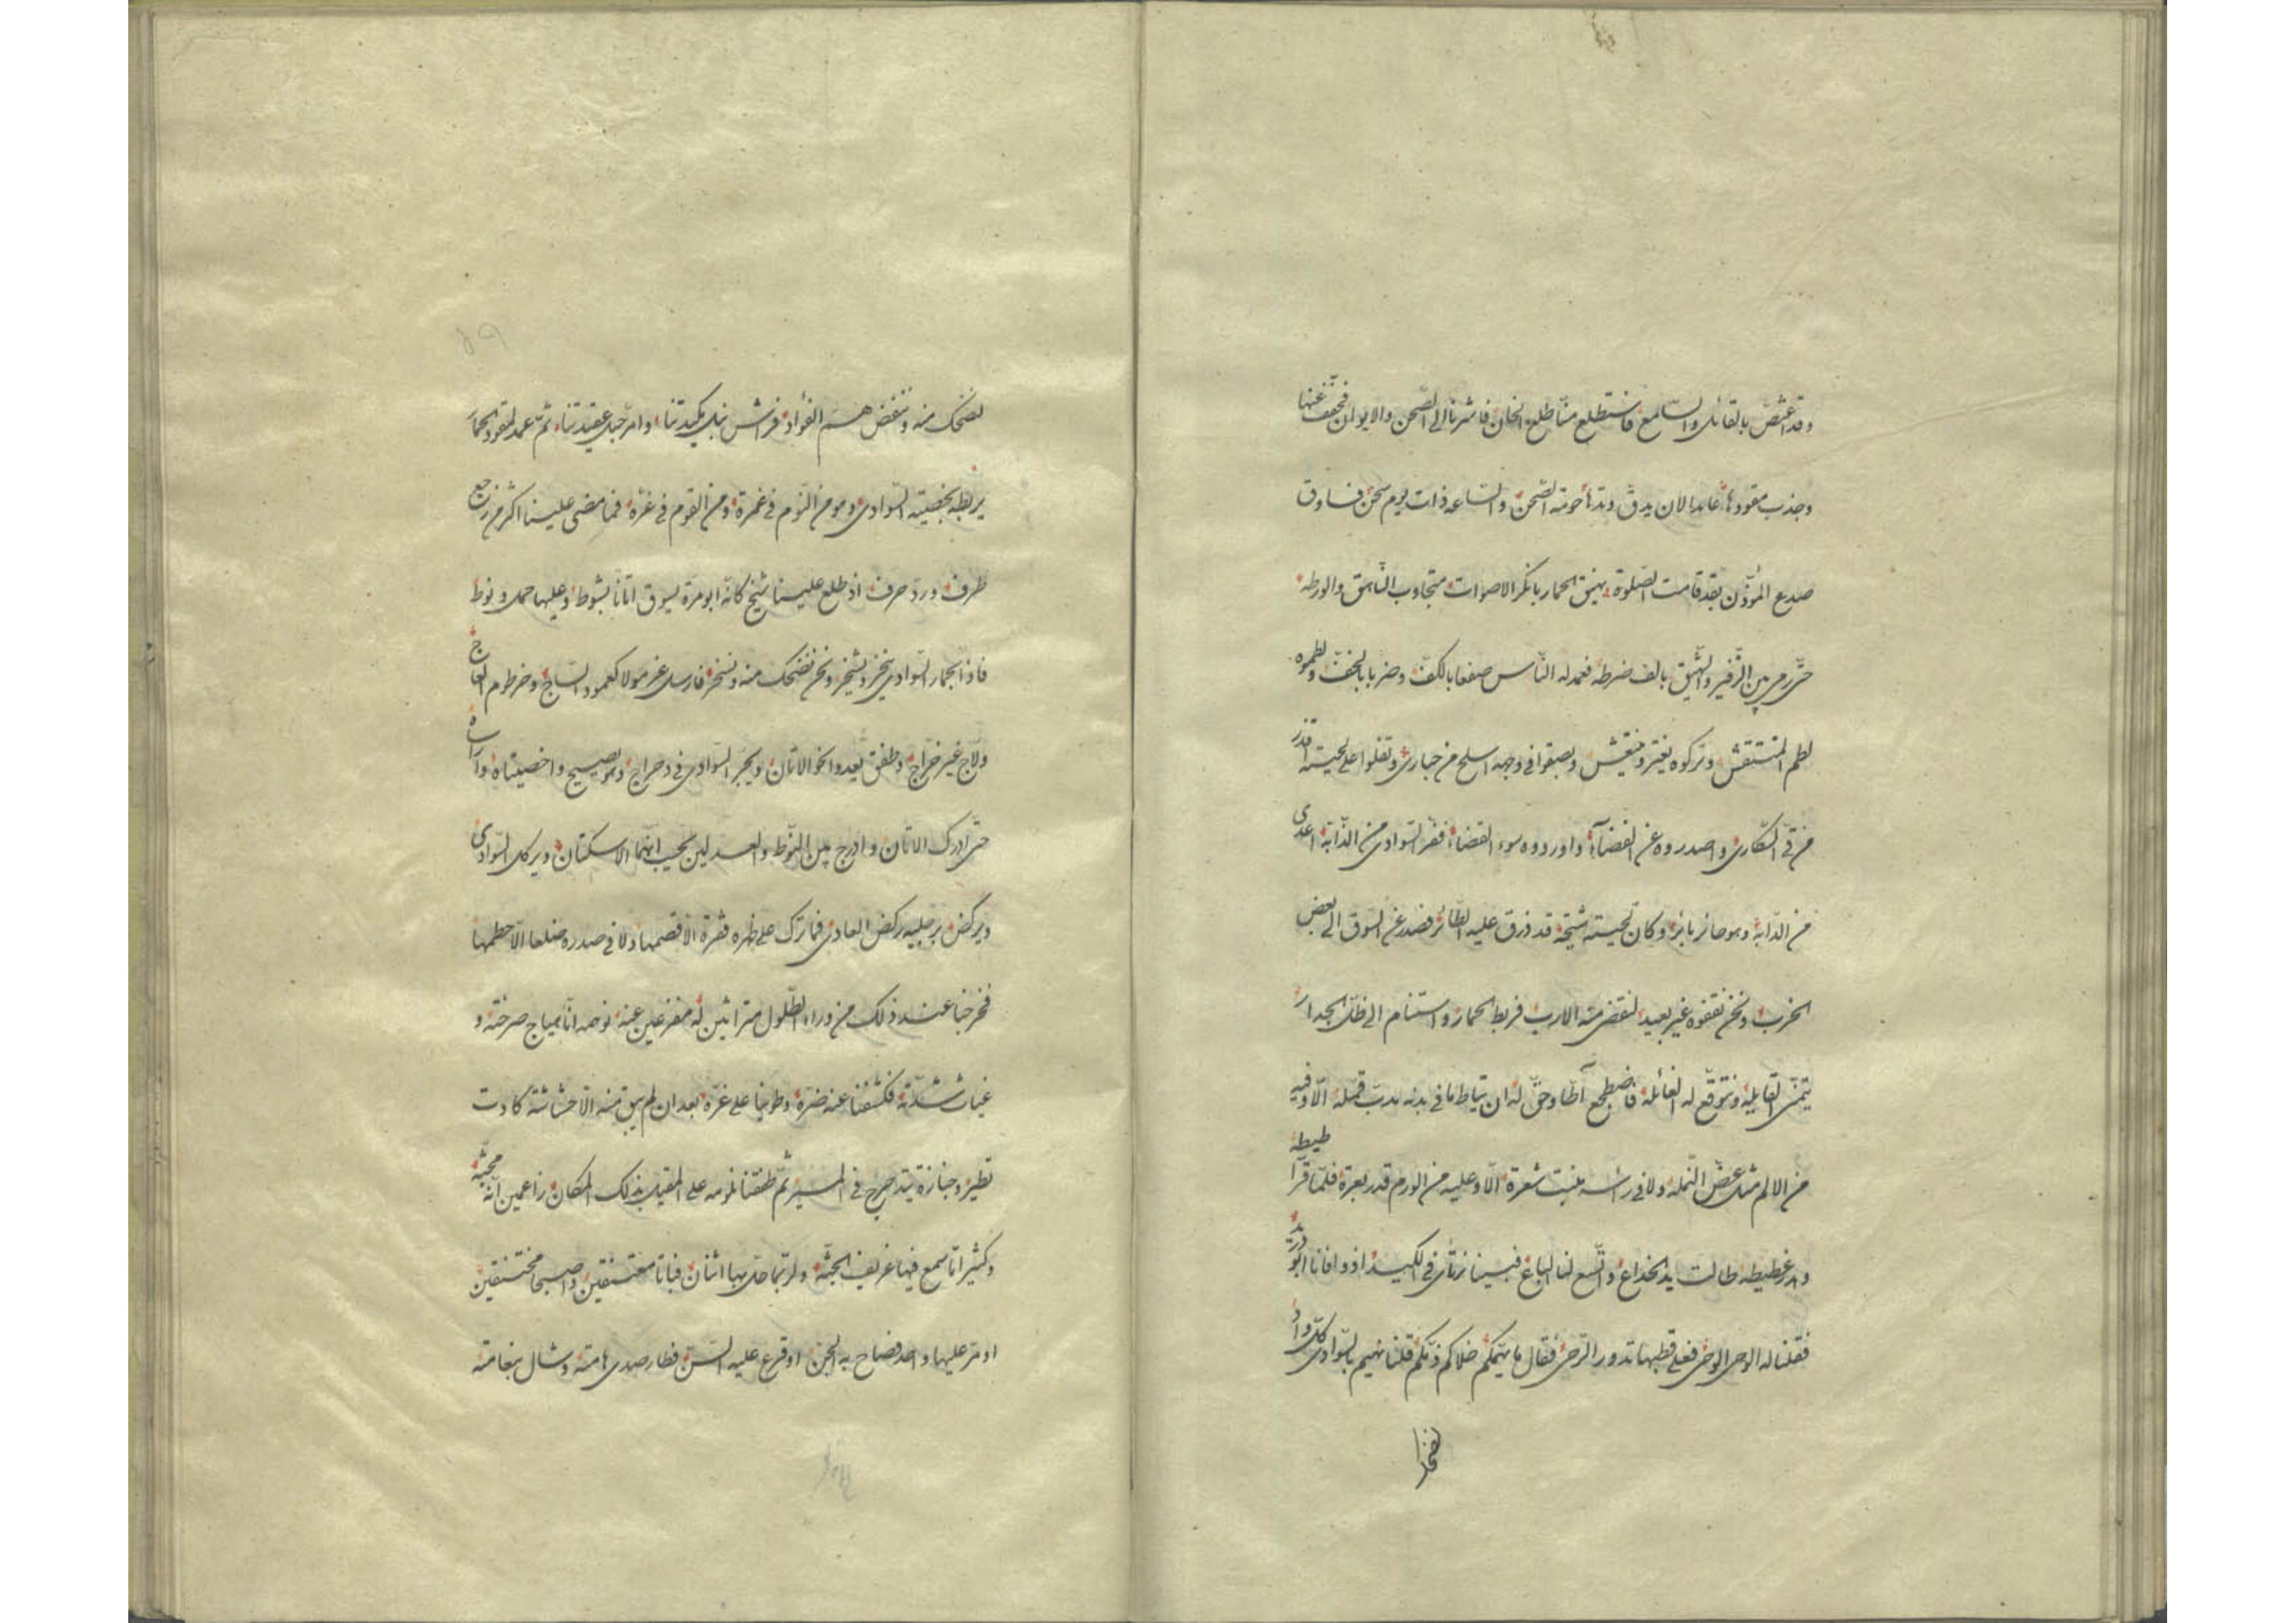 وقد اغتصّ بالقائل والسّامع فاستطلع منّا طلع الخان فاشرنا الى الصّحن والايوان فخفّف عنها
وجذب مقودها عامدا لان يدقّ وتدها حومة الصّحن والسّاعه ذات يوم سخن فساوق
صديع المؤذّن بقد قامت الصّلوة نهيق الحمار بانكر الاصوات متجاوب النّاهق والورطه
حتّى رمى بين الزّفير والشّهيق بالف ضرطه فعمد له النّاس صفعا بالكفّ وضربا بالخفّ ولطموه
لطم المنتقش وتركوه يعثر وينتعش وبصقوا فى وجهه اسلح من حبارى وتفلوا على لحيته اقذر
من قىّ السّكارى واصدروه عن الفضاء واوردوه سوء القضاء ففرّ السّوادى من الدّابّة اعدى
من الدّابة وهو حائر بائر وكان لحيته شيخة قد ذرق عليه الطّائر فصدر عن السّوق الى بعض
الخرب ونحن نقفوه غير بعيد لنقضى منه الارب فربط الحمار واستنام الى ظلّ الجدار
يتمنّى القايله ونتوقّع له الغائله فاضطجع آطّا وحقّ له ان يتاطّ ما فى بدنه مدبّ قمله الّا وفيه
من الالم مثل عضّ النّمله ولا فى راسه منبت شعرة الّا وعليه من الورم قدر بعرة فلمّا قرّ اطيطه
وهدر غطيطه طالت يد الخداع واتّسع لنا الباع فبينا نرتأى فى الكيد اذ وافانا ابو دريد
فقلنا له الوحى الوحى فعلى قطبها تدور الرّحى فقال ما يهمّكم خلاكم ذمّكم قلنا نهيم بالسّوادى كلّ واد
لضحك منه وننفض همّ الفؤاد فراش نبل مكيدتنا وامرّ حبل عقيدتنا ثمّ عمد لمقود الحمار
يربطه بخصيته السّوادى وهو من النّوم فى غمرة ومن القوم فى غرّة فما مضى علينا اكثر من رجع
طرف وردّ حرف اذ طلع علينا شيخ كانّه ابو مرّة يسوق اتانا بشوط وعليها حمل ونوط
فاذا بحمار السّوادى ينخر ويشخر ونحن نضحك منه ونسخر فارسل غرمولا كعمود السّاج وخرطوم العاج
ولّاج غير خرّاج وطفق يعدو نحو الاتان ويجرّ السّوادى فى دحراج وهو يصيح واخصيتاه واراساه
حتّى ادرك الاتان وادرج بين النّوط والعدلين يحسب انّهما الاسكتان ويركل السّوادى
ويركض برجليه ركض العادى فما ترك على ظهره فقرة الّا قصمها ولا فى صدره ضلعا الّا حطمها
فخرجنا عند ذلك من وراء الطّلول متراثين له مفزعين عنه نوهمه انّا هياج صرخته و
غياث شدّته فكشفنا عنه ضرّه وطوينا على غرّه بعد ان لم يبق منه الّا حشاشة كادت
تطير وجنازة تتدحرج فى المسير ثمّ طفقنا نلومه على المقيل بذلك المكان زاعمين انّه مجنّه
وكثيرا نّا سمع فيها عزيف الجنّه ولربّما حلّ بها اثنان فباتا معتنقين واصبحا مختنقين
او مرّ عليها واحد فصاح به الجنّ او قرع عليه السّنّ فطار صدى هامته وشال بنعامته